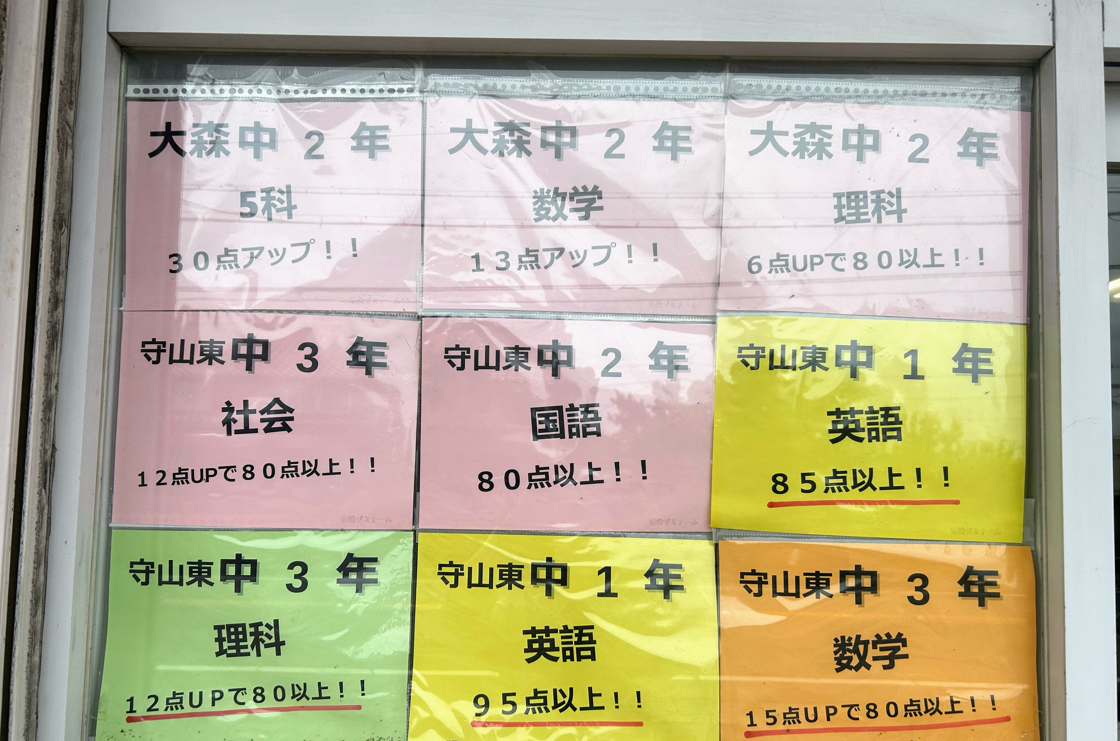 大森中 2 年
5科
30点アップ！！
大森中 2 年
数学
13点アップ！！
大森中 2 年
理科
6点UPで80以上！！
守山東中 3 年
社会
12点UPで80点以上！！
守山東中 2 年
国語
80点以上！！
守山東中 1 年
英語
85点以上！！
守山東中 3 年
理科
12点UPで80以上！！
守山東中 1 年
英語
95点以上！！
守山東中 3 年
数学
15点UPで80点以上！！